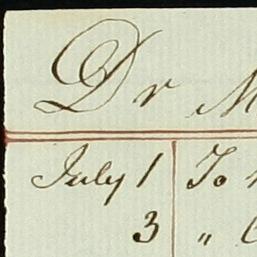 Dr M
July 1 To
3 "